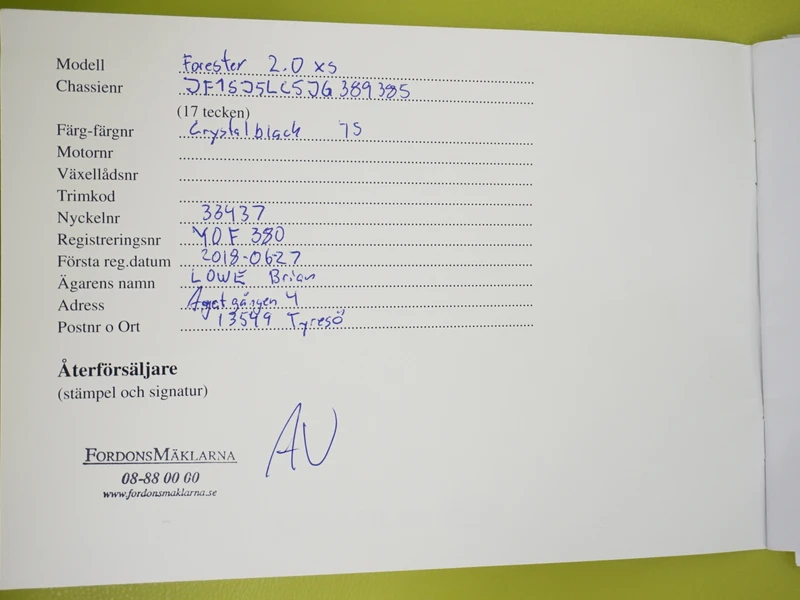 Modell Forester 2.0 xs
Chassienr JF1SJ5LC5JG389385
(17 tecken)
Färg-färgnr Crystal black 7S
Motornr
Växellådsnr
Trimkod
Nyckelnr 33437
Registreringsnr MOF 380
Första reg.datum 2018-06-27
Ägarens namn LOWE Brian
Adress 4
Postnr o Ort 13549 Tyresö
Återförsäljare
(stämpel och signatur)
AV
FORDONSMÄKLARNA
08-88 00 00
www.fordonsmaklarna.se